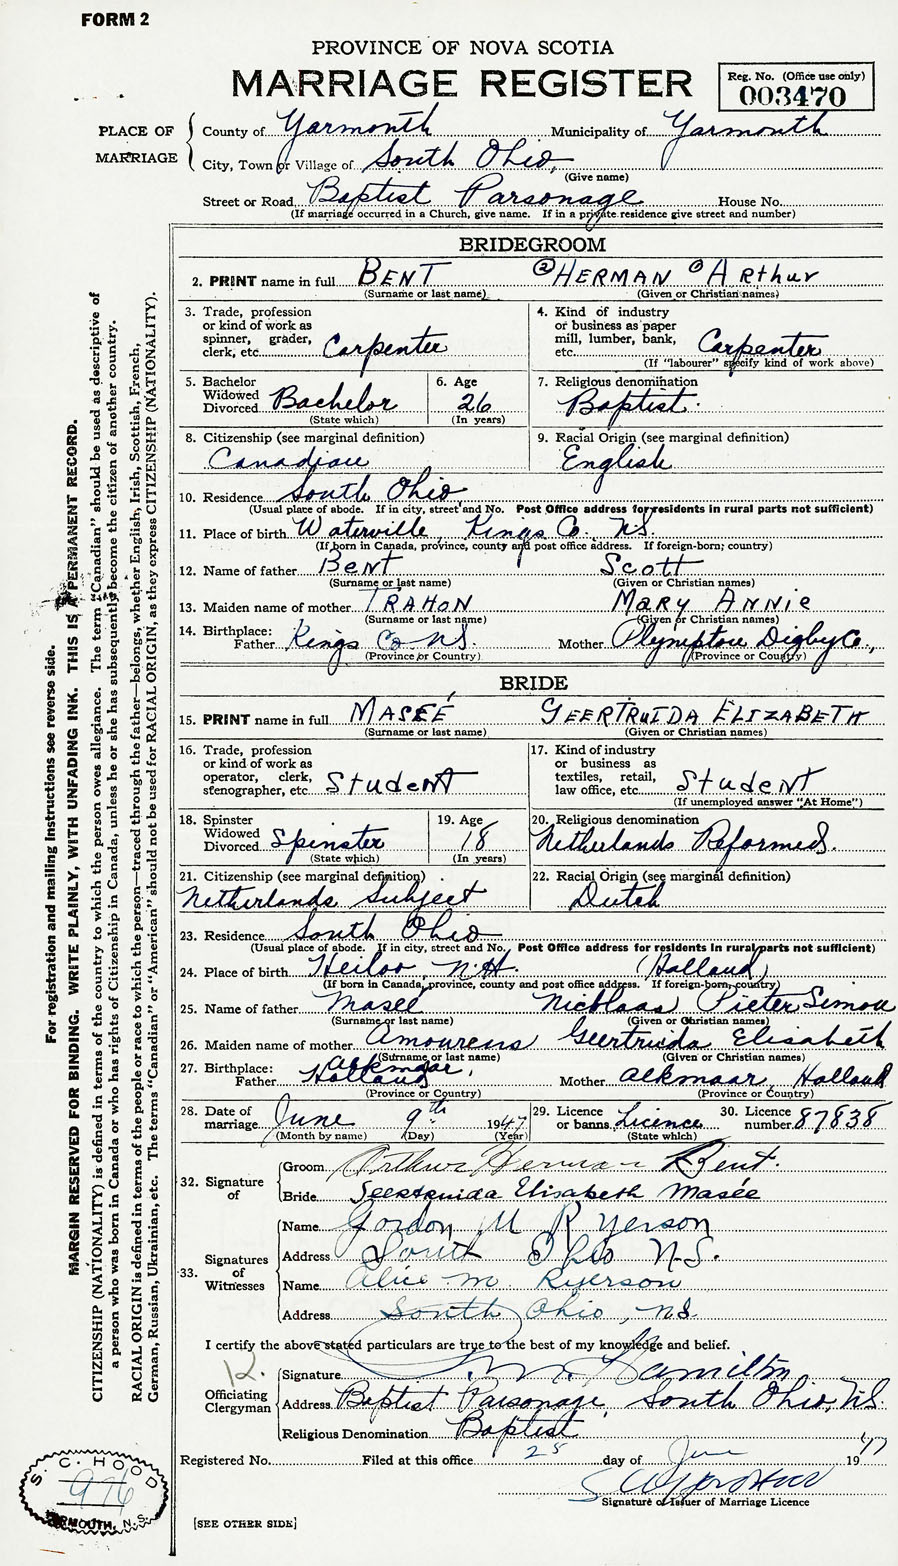 FORM 2
PROVINCE OF NOVA SCOTIA
MARRIAGE REGISTER
Reg. No. (Office use only)
003470
PLACE OF MARRIAGE
County of Yarmouth Municipality of Yarmouth
City, Town or Village of South Ohio,
(Give name)
Street or Road Baptist Parsonage House No.
(If marriage occurred in a Church, give name. If in a private residence give street and number)
BRIDEGROOM
2. PRINT name in full BENT ② HERMAN ① Arthur
(Surname or last name) (Given or Christian names)
3. Trade, profession or kind of work as spinner, grader, clerk, etc. Carpenter
4. Kind of industry or business as paper mill, lumber, bank, etc. Carpenter
(If "labourer" specify kind of work above)
5. Bachelor Widowed Divorced Bachelor
(State which)
6. Age 26
(In years)
7. Religious denomination Baptist.
8. Citizenship (see marginal definition) Canadian
9. Racial Origin (see marginal definition) English
10. Residence South Ohio
(Usual place of abode. If in city, street and No. Post Office address for residents in rural parts not sufficient)
11. Place of birth Waterville, Kings Co. N.S.
(If born in Canada, province, county and post office address. If foreign-born; country)
12. Name of father Bent Scott
(Surname or last name) (Given or Christian names)
13. Maiden name of mother TRAHON MARY ANNIE
(Surname or last name) (Given or Christian names)
14. Birthplace: Father Kings Co. N.S. Mother Plympton Digby Co.,
(Province or Country) (Province or Country)
BRIDE
15. PRINT name in full MASÉÉ GEERTRUIDA ELIZABETH
(Surname or last name) (Given or Christian names)
16. Trade, profession or kind of work as operator, clerk, stenographer, etc. Student
17. Kind of industry or business as textiles, retail, law office, etc. Student
(If unemployed answer "At Home")
18. Spinster Widowed Divorced Spinster
(State which)
19. Age 18
(In years)
20. Religious denomination Netherlands Reformed.
21. Citizenship (see marginal definition) Netherlands Subject
22. Racial Origin (see marginal definition) Dutch
23. Residence South Ohio
(Usual place of abode. If in city, street and No. Post Office address for residents in rural parts not sufficient)
24. Place of birth Heiloo, N.H. (Holland)
(If born in Canada, province, county and post office address. If foreign-born, country)
25. Name of father Maseé Nicolaas Pieter Simon
(Surname or last name) (Given or Christian names)
26. Maiden name of mother Amourens Geertruida Elisabeth
(Surname or last name) (Given or Christian names)
27. Birthplace: Father Alkmaar, Holland Mother Alkmaar, Holland
(Province or Country) (Province or Country)
28. Date of marriage June 9th 1947
(Month by name) (Day) (Year)
29. Licence or banns Licence
(State which)
30. Licence number 87838
32. Signature of
Groom Arthur Herman Bent.
Bride Geertruida Elisabeth Masée
33. Signatures of Witnesses
Name Gordon M Ryerson
Address South Ohio N.S.
Name Alice M. Ryerson
Address South Ohio, N.S.
I certify the above stated particulars are true to the best of my knowledge and belief.
Officiating Clergyman
Signature Hamilton
Address Baptist Parsonage, South Ohio, N.S.
Religious Denomination Baptist
Registered No. Filed at this office 25 day of June 1947
Signature of Issuer of Marriage Licence
[SEE OTHER SIDE]
S. C. HOOD
976
YARMOUTH, N.S.
For registration and mailing instructions see reverse side.
MARGIN RESERVED FOR BINDING. WRITE PLAINLY, WITH UNFADING INK. THIS IS A PERMANENT RECORD.
CITIZENSHIP (NATIONALITY) is defined in terms of the country to which the person owes allegiance. The term "Canadian" should be used as descriptive of
a person who was born in Canada or who has rights of Citizenship in Canada, unless he or she has subsequently become the citizen of another country.
RACIAL ORIGIN is defined in terms of the people or race to which the person—traced through the father—belongs, whether English, Irish, Scottish, French,
German, Russian, Ukrainian, etc. The terms "Canadian" or "American" should not be used for RACIAL ORIGIN, as they express CITIZENSHIP (NATIONALITY).